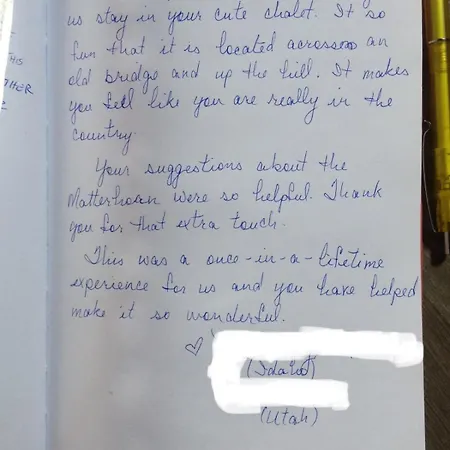 us stay in your cute chalet. It so
fun that it is located across an
old bridge and up the hill. It makes
you feel like you are really in the
country.
Your suggestions about the
Matterhorn were so helpful. Thank
you for that extra touch.
This was a once-in-a-lifetime
experience for us and you have helped
make it so wonderful.
♡
(Idaho)
(Utah)
THIS